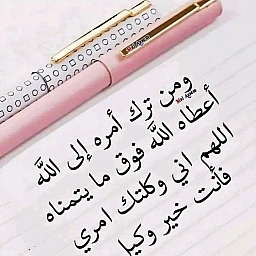 ومن ترك أمره إلى الله
أعطاه الله فوق ما يتمناه
اللهم اني وكلتك امري
فأنت خير وكيل